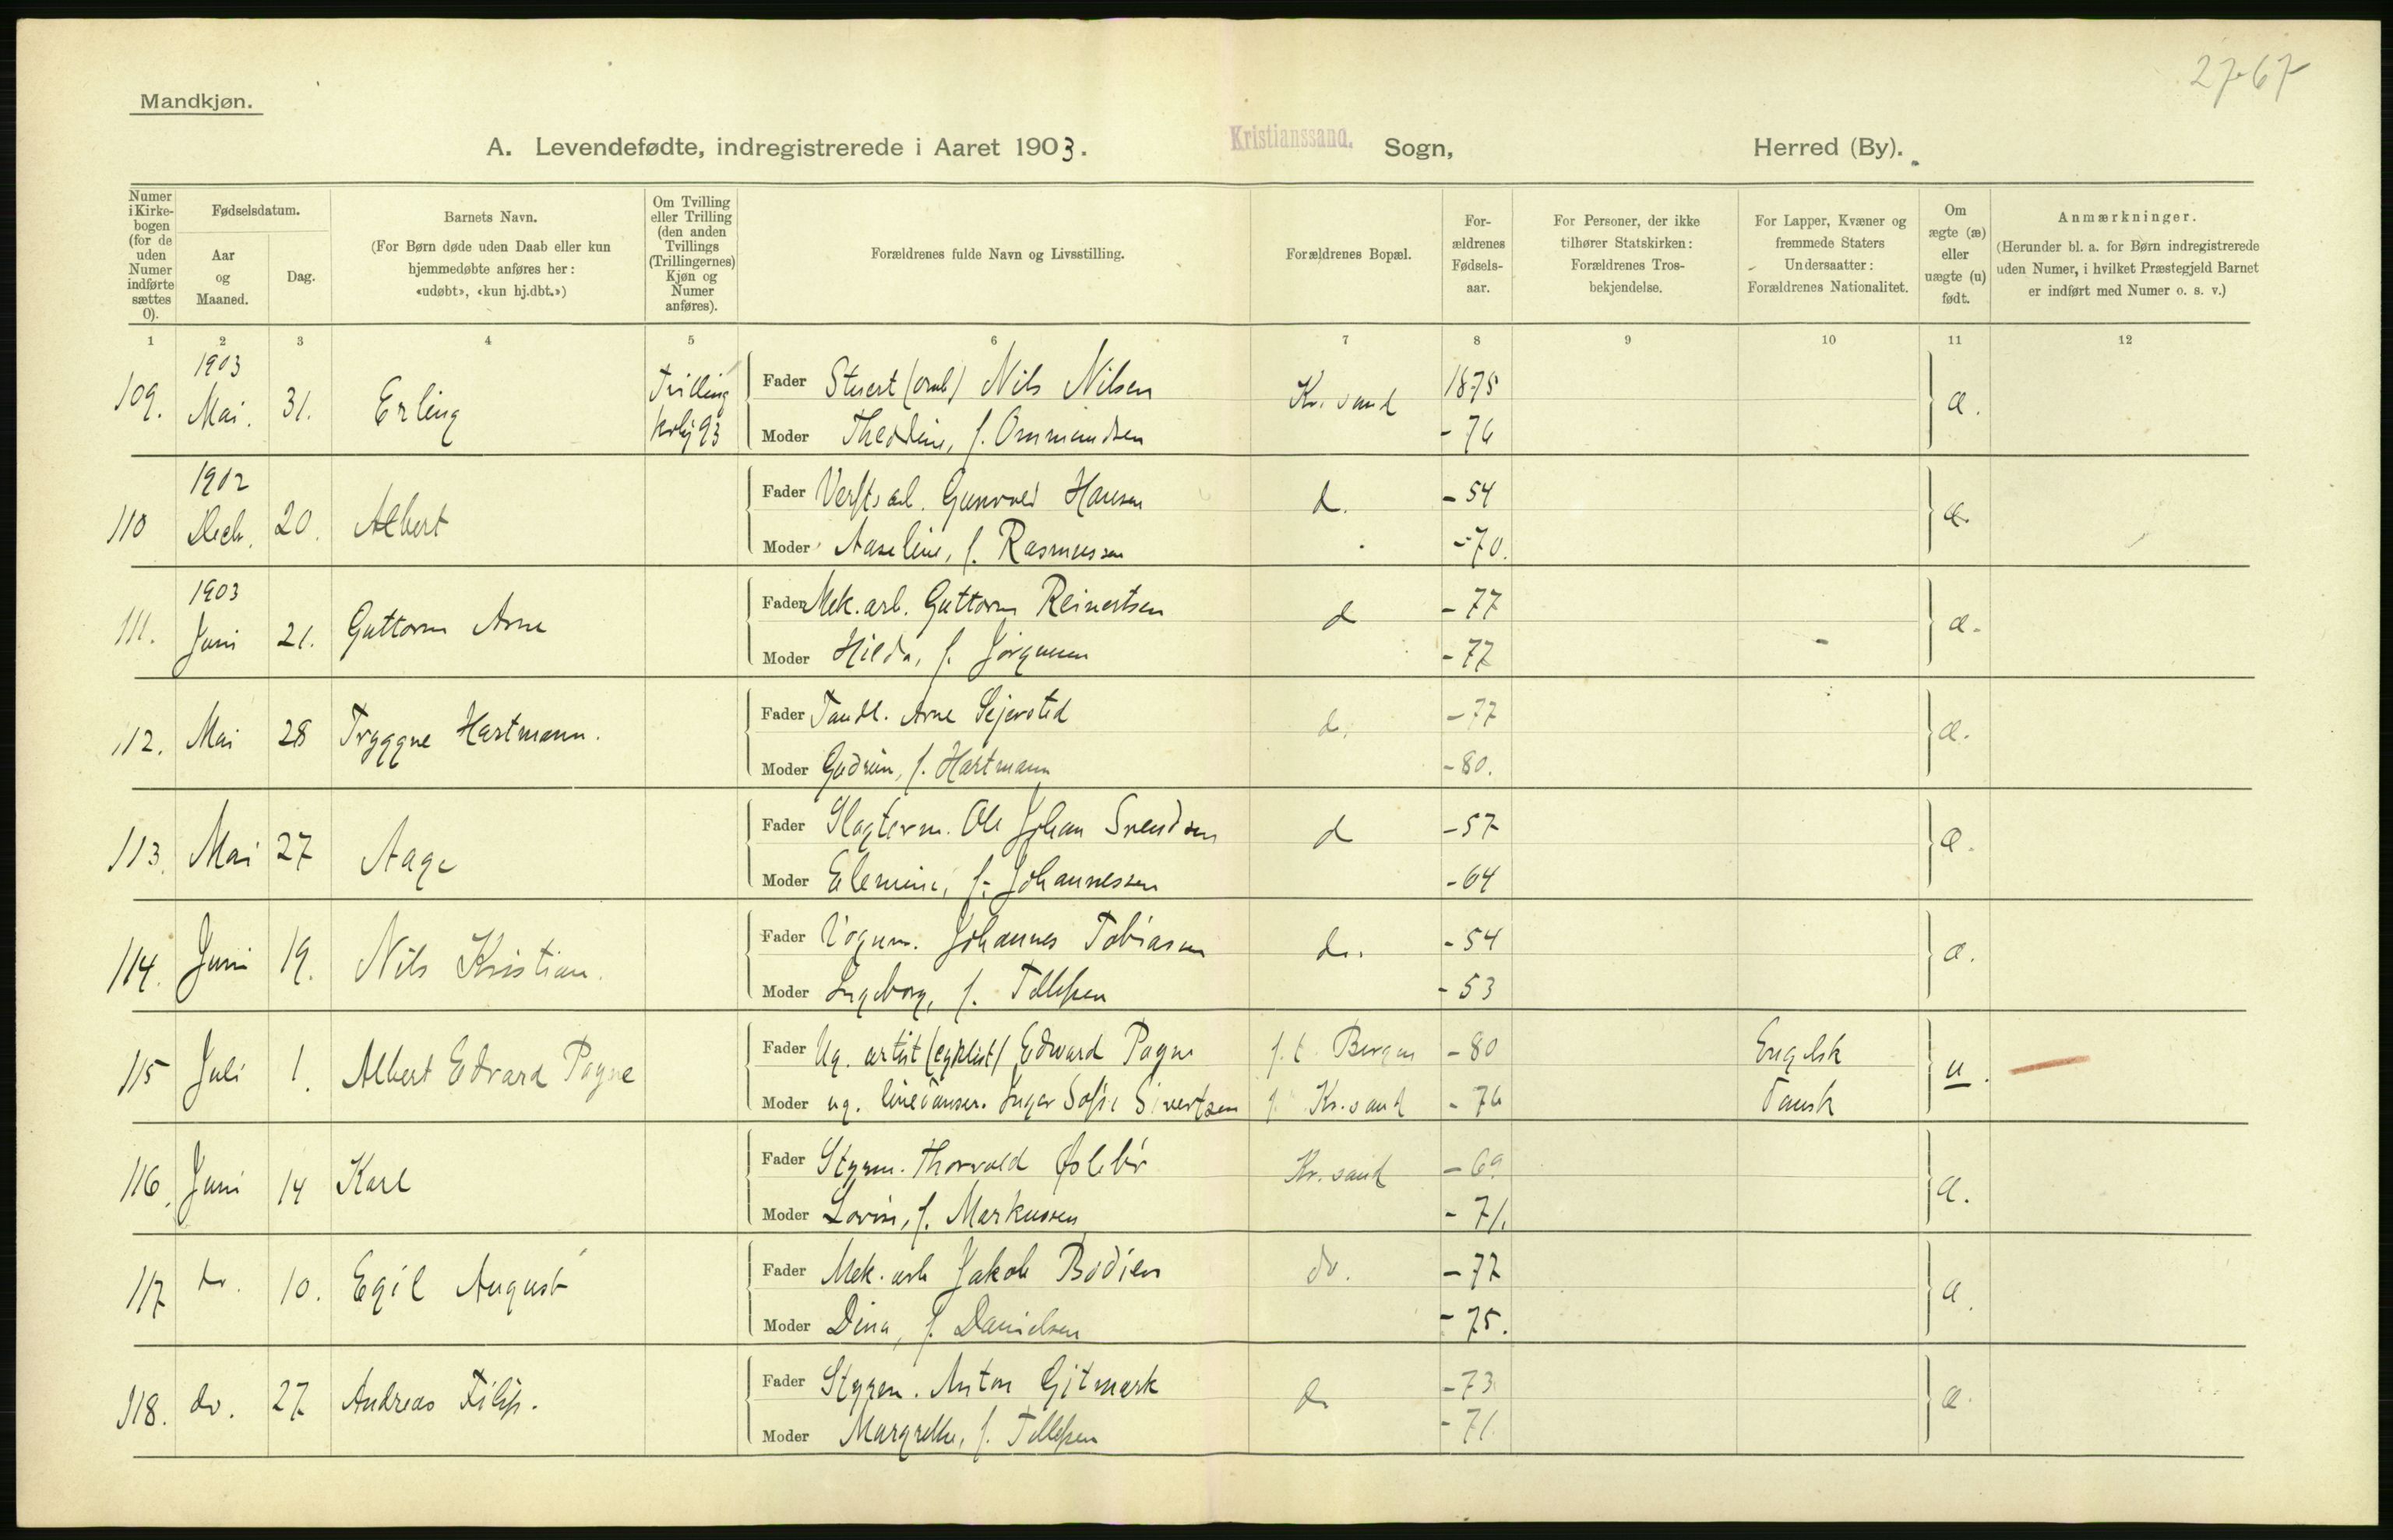 27-67
Mandkjøn.
A. Levendefødte, indregistrerede i Aaret 1903. Kristianssand. Sogn, Herred (By).
Numer i Kirkebogen (for de uden Numer indførte sættes 0).
Fødselsdatum.
Aar og Maaned.
Dag.
Barnets Navn.
(For Børn døde uden Daab eller kun hjemmedøbte anføres her: «udøbt», «kun hj.dbt.»)
Om Tvilling eller Trilling (den anden Tvillings (Trillingernes) Kjøn og Numer anføres).
Forældrenes fulde Navn og Livsstilling.
Forældrenes Bopæl.
For-ældrenes Fødsels-aar.
For Personer, der ikke tilhører Statskirken: Forældrenes Tros-bekjendelse.
For Lapper, Kvæner og fremmede Staters Undersaatter: Forældrenes Nationalitet.
Om ægte (æ) eller uægte (u) født.
Anmærkninger.
(Herunder bl. a. for Børn indregistrerede uden Numer, i hvilket Præstegjeld Barnet er indført med Numer o. s. v.)
1 2 3 4 5 6 7 8 9 10 11 12
109. 1903 Mai. 31. Erling Trilling 93
Fader Nils Nilsen Kr. sand 1875 æ.
Moder f. Ommundsen - 76
110 1902 Dech. 20. Albert
Fader Gunvald Hansen d. - 54 æ.
Moder Aaseline, f. Rasmussen - 70.
111. 1903 Juni 21. Guttorm Arne
Fader Mek. arb. Guttorm Reinertsen d - 77 æ.
Moder Hilda, f. Jörgensen - 77
112. Mai 28 Tryggve Hartmann.
Fader Tandl. Arne Sejersted d. - 77 æ.
Moder Gudrun, f. Hartmann - 80.
113. Mai 27 Aage
Fader Slagterm. Ole Johan Svendsen d - 57 æ.
Moder Elemine, f. Johannessen - 64
114. Juni 19. Nils Kristian.
Fader Vognm. Johannes Tobiasen do. - 54 æ.
Moder Ingeborg, f. Tellefsen - 53
115 Juli 1. Albert Edvard Payne
Fader Ug. artist (cyklist) Edward Payne f. t. Bergen - 80 Engelsk u.
Moder ug. linedanser. Inger Sofie Sivertsen Kr. sand - 76 Dansk
116. Juni 14 Karl
Fader Styrm. Thorvald Kr. sand - 69 æ.
Moder Lovise, f. Markussen - 71.
117 do. 10. Egil August
Fader Mek. arb Jakob Bodien do. - 77 æ.
Moder Dina, f. Danielsen - 75.
118. do. 27 Andreas Filip.
Fader Styrm. Anton Gitmark do - 73 æ.
Moder Margrethe, f. Tellefsen - 71.